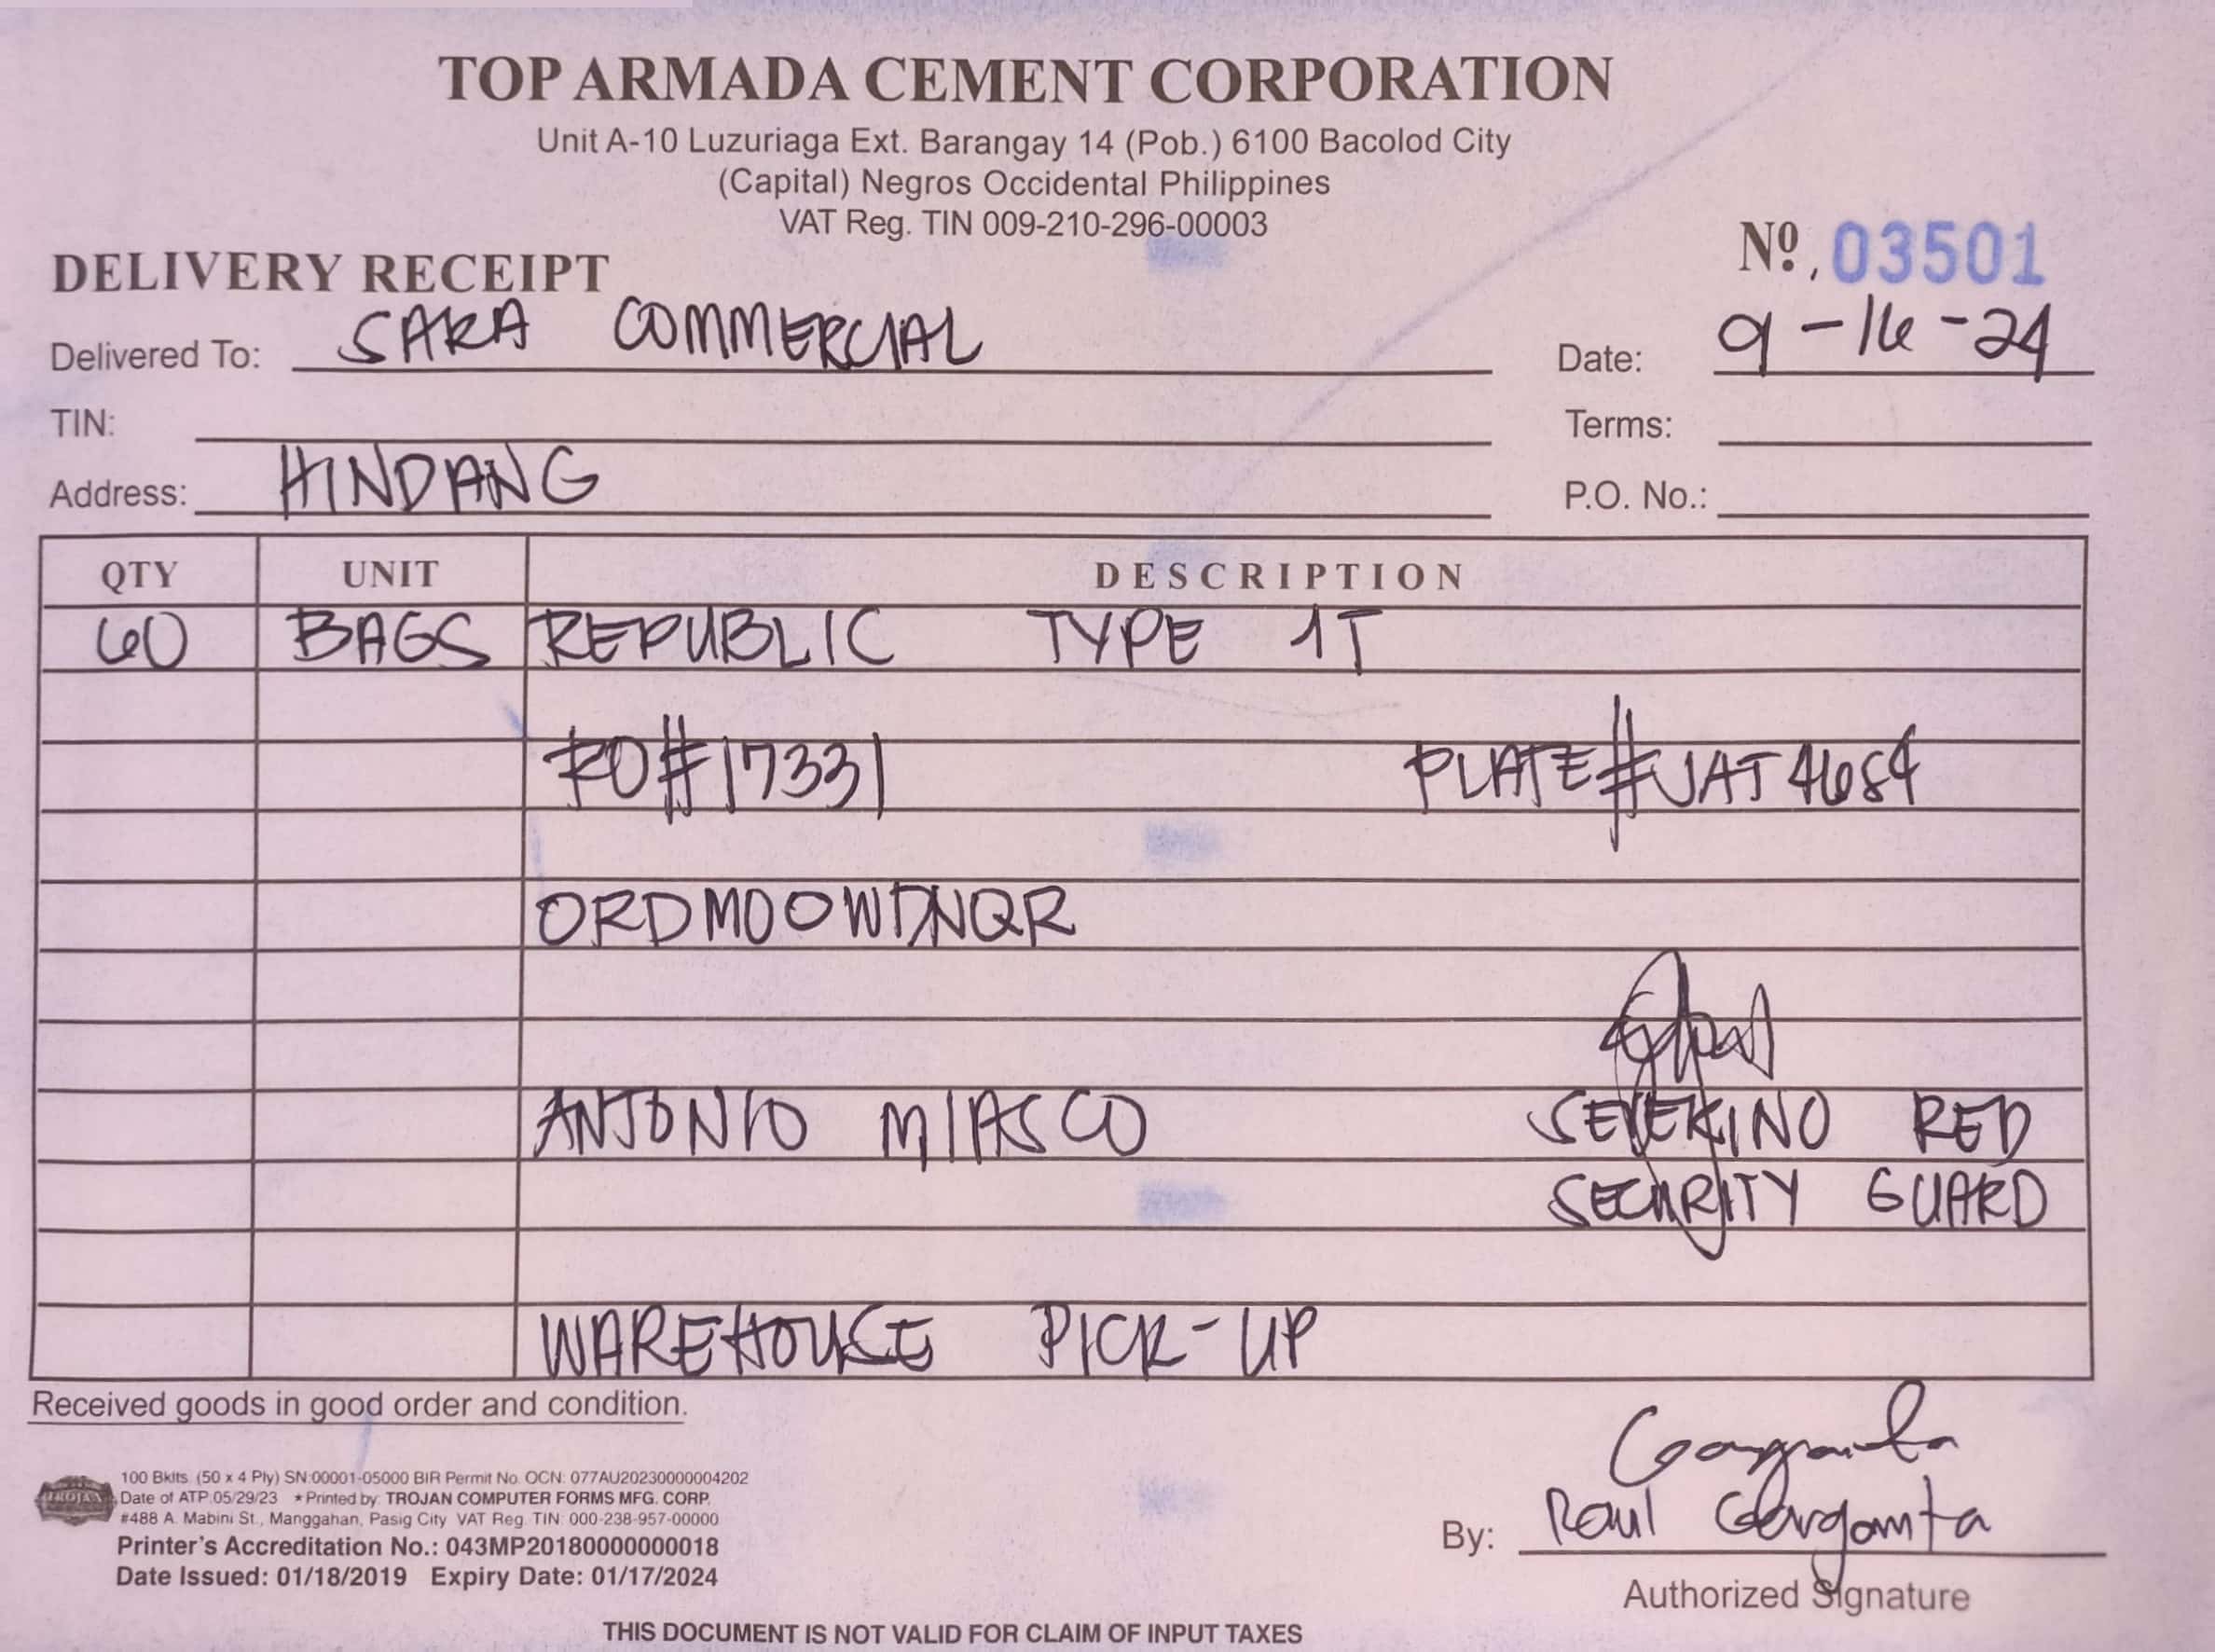 TOP ARMADA CEMENT CORPORATION
Unit A-10 Luzuriaga Ext. Barangay 14 (Pob.) 6100 Bacolod City
(Capital) Negros Occidental Philippines
VAT Reg. TIN 009-210-296-00003
Nº 03501
DELIVERY RECEIPT
Delivered To: SARA COMMERCIAL Date: 9-16-24
TIN: Terms:
Address: HINDANG P.O. No.:
QTY UNIT DESCRIPTION
60 BAGS REPUBLIC TYPE 1T
RO#17331 PLATE#
ORDMOOWDNQR
ANTONIO MIASCO SEVERINO RED
SECURITY GUARD
WAREHOUSE PICK-UP
Received goods in good order and condition.
100 Bklts. (50 x 4 Ply) SN:00001-05000 BIR Permit No. OCN: 077AU20230000004202
TROJAN Date of ATP:05/29/23 ★Printed by: TROJAN COMPUTER FORMS MFG. CORP.
#488 A. Mabini St., Manggahan, Pasig City VAT Reg. TIN: 000-238-957-00000
Printer's Accreditation No.: 043MP20180000000018
Date Issued: 01/18/2019 Expiry Date: 01/17/2024
By: Raul Garganta
Authorized Signature
THIS DOCUMENT IS NOT VALID FOR CLAIM OF INPUT TAXES